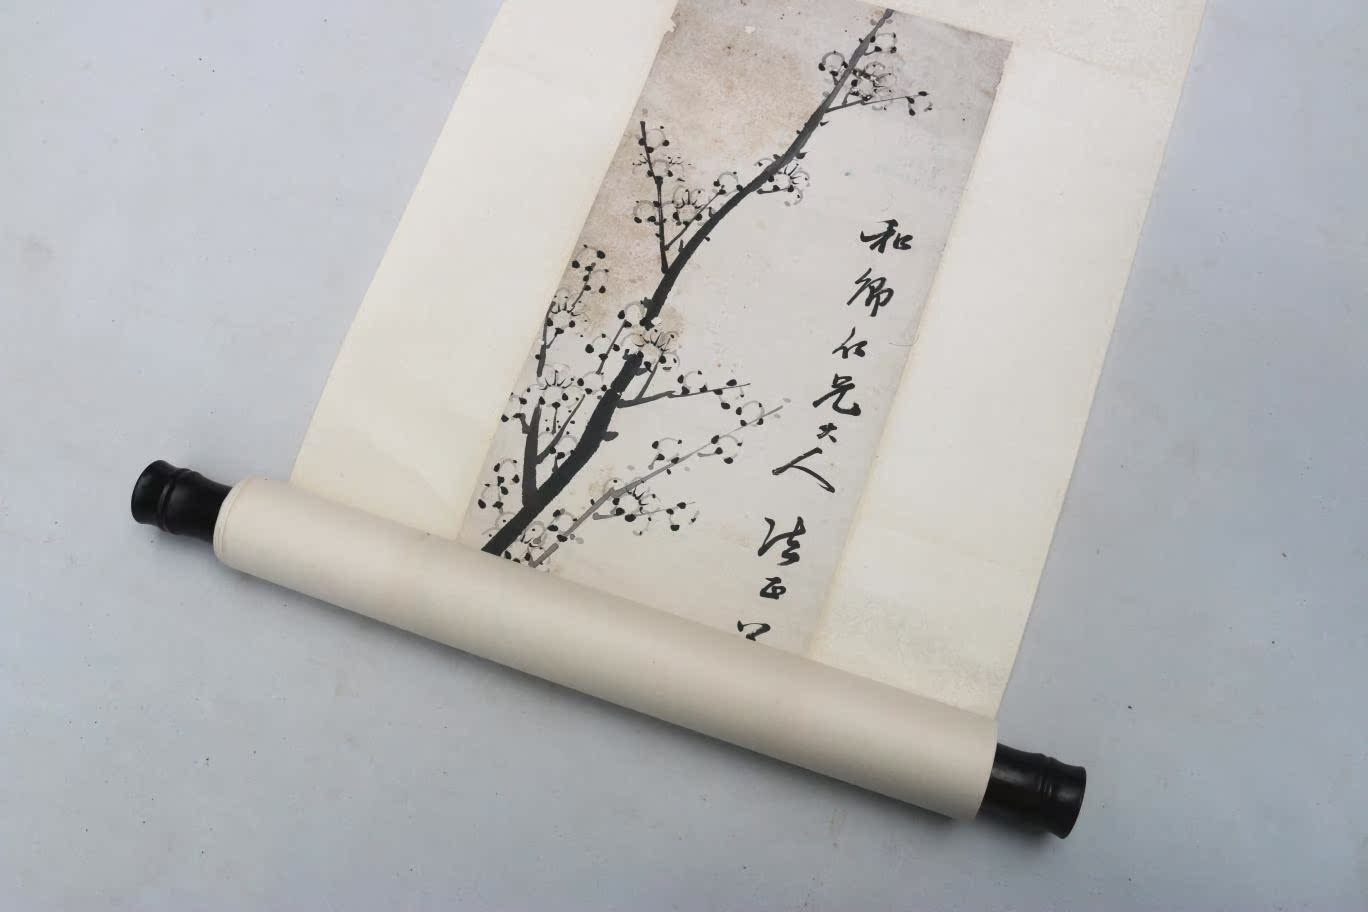 和卿仁兄大人 法正